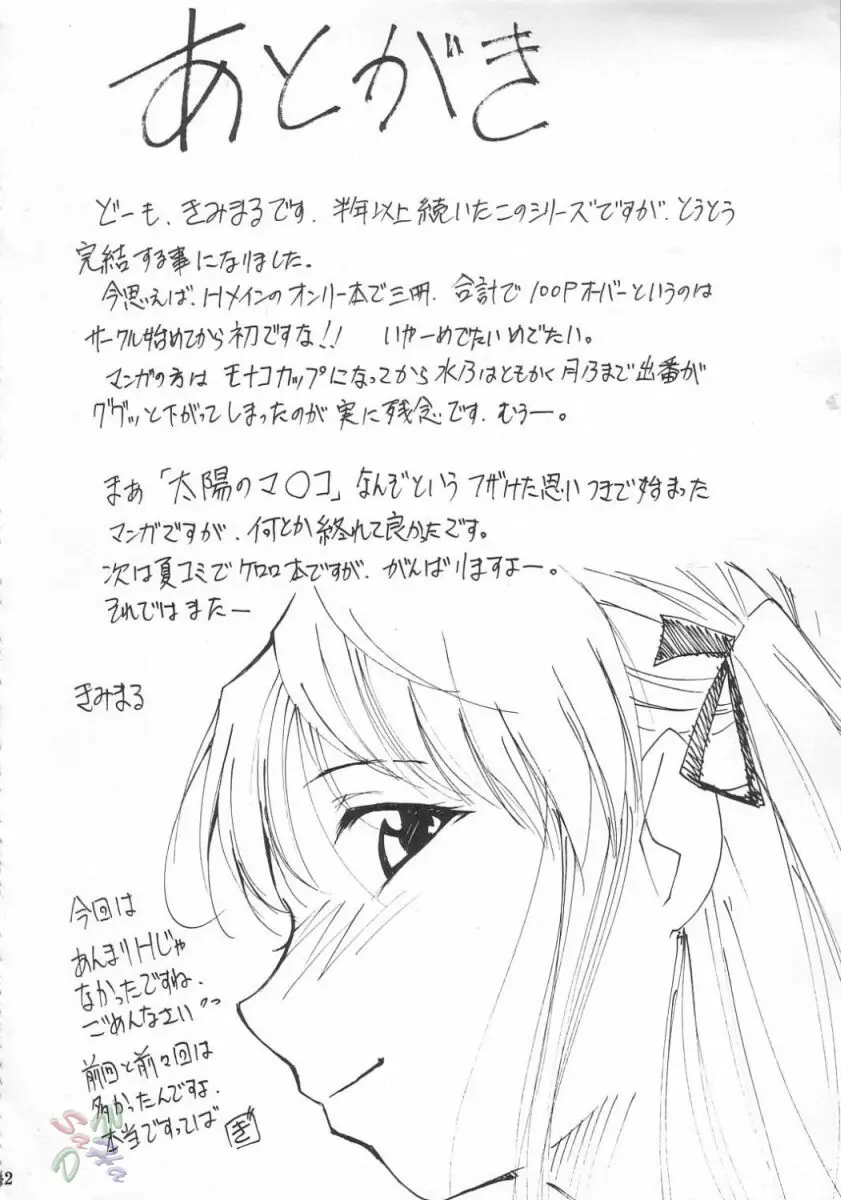 あとがき
どーも、きみまるです。半年以上続いたこのシリーズですが、とうとう
完結する事になりました。
今思えば、Hメインのオンリー本で三冊、合計で100Pオーバーというのは
サークル始めてから初ですな!! いやーめでたいめでたい。
マンガの方はモナコカップになってから水乃はともかく月乃まで出番が
グググッと下がってしまったのが実に残念です。むぅー。
まぁ「太陽のマ〇コ」なんぞというフザけた思いつきで始まった
マンガですが、何とか終れて良かったです。
次は夏コミでケロロ本ですが、がんばりますよー。
それではまたー
きみまる
今回は
あんまりHじゃ
なかったですね、
ごめんなさい
前回と前々回は
多かったんですよ、
本当ですってば
ぎ
42